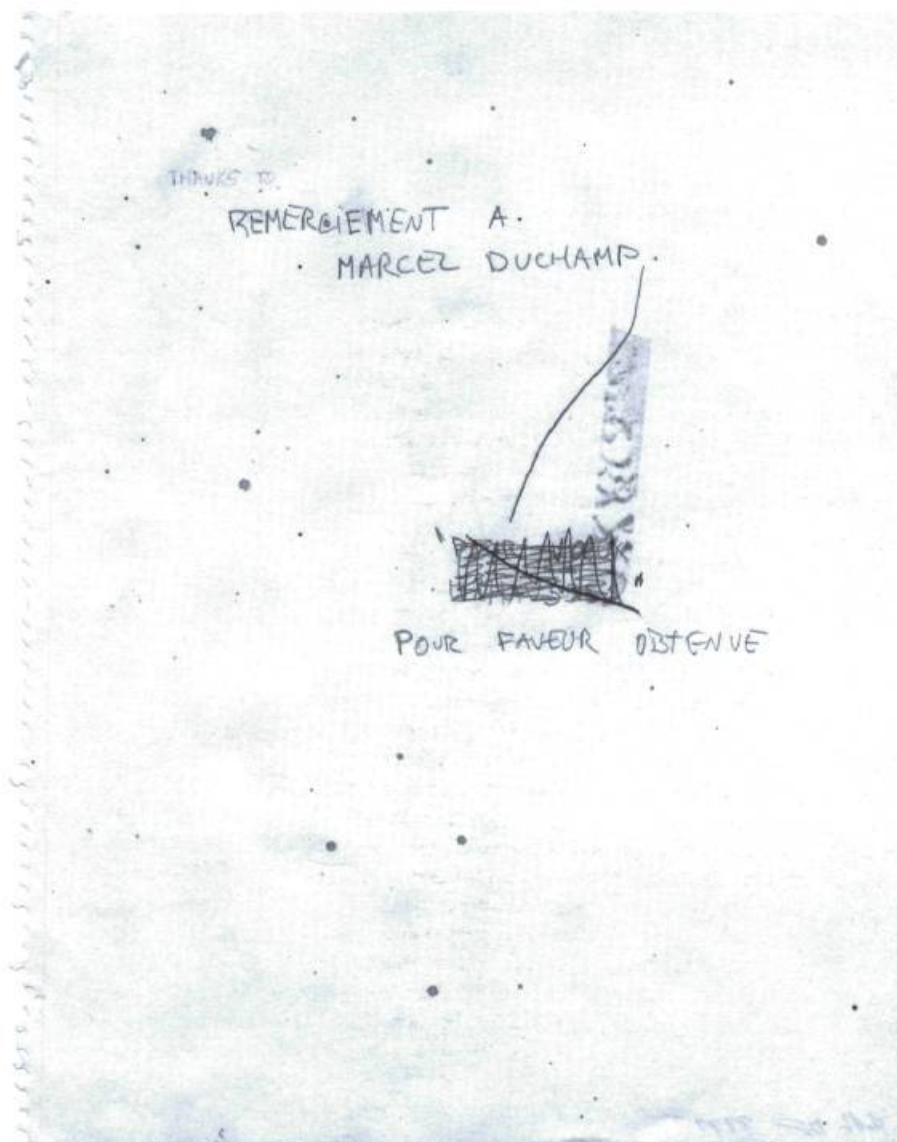 THANKS TO.
REMERCIEMENT A.
MARCEL DUCHAMP.
POUR FAVEUR OBTENUE